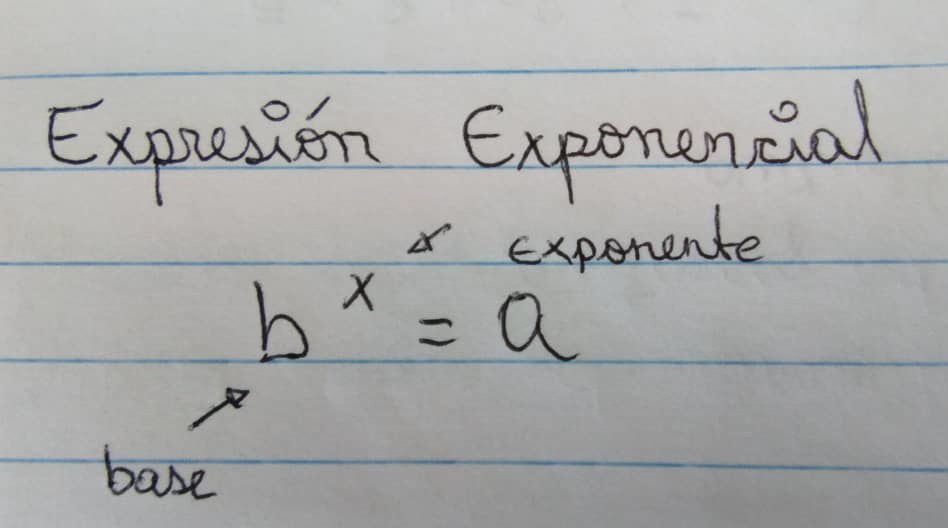 Expresión Exponencial
exponente
b^x = a
base